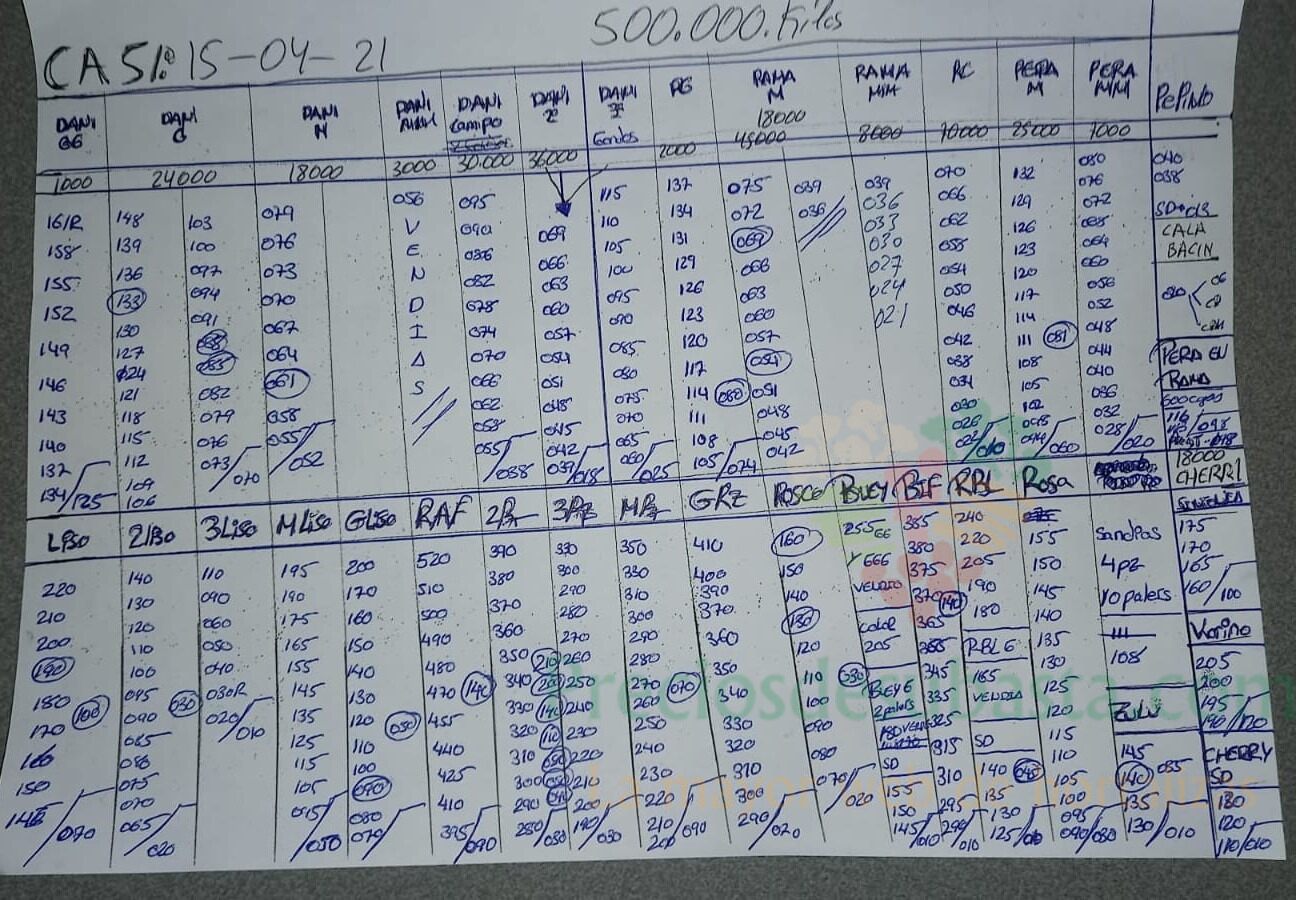 500.000.Kilos
CASI: 15-04-21
DANI GG DANI G DANI M DANI MMM DANI Campo DANI 2ª DANI 3ª Gordos PG RAMA M 18000 RAMA MM RC PERA M PERA MM PEPINO
1000 24000 18000 3000 30.000 36000 2000 45000 8000 10000 25000 7000
161R 148 103 079 056 095 115 137 075 039 039 070 132 080 040
158 139 100 076 V 090 069 110 134 072 036 036 066 129 076 038
155 136 097 073 E 086 066 105 131 069 033 062 126 072
152 133 094 070 N 082 063 100 129 066 030 058 123 068 CALA
149 130 091 067 D 078 060 095 126 063 027 054 120 064 BACIN
146 127 088 064 I 074 057 090 123 060 024 050 117 060
143 124 085 061 A 070 054 085 120 057 021 046 114 056
140 121 082 058 S 066 051 080 117 054 042 111 081 052
137 118 079 055 062 048 075 114 080 051 038 108 048 PERA EN
134/125 115 076 052 058 045 070 111 048 034 105 044 RAMA
112 073/070 055/038 042 065 108 045 030 102 040
109 039/018 060/025 105/074 042 026 098 036
106 022/010 094/060 032
028/020
18000
CHERRI
LISO 2LISO 3LISO MLISO GLISO RAF GRZ ROSCO BUEY BIF RBL ROSA
220 140 110 195 200 520 390 330 350 410 160 255 385 240 155 175
210 130 090 190 170 510 380 300 330 400 150 Y666 380 220 150 170
200 120 060 175 160 500 370 290 310 390 140 VERDIO 375 205 145 4pz 165
190 110 050 165 150 490 360 280 300 370 130 color 370 140 190 140 10 palets 160/100
180 100 040 155 140 480 350 210 270 290 360 120 205 365 180 135 111
170 100 095 030R 145 130 470 140 340 200 260 280 350 110 030 345 RBL G 130 108 205
160 090 030 020/010 135 120 030 455 330 140 250 270 070 340 100 BUEY G 335 165 125 200
150 085 125 110 440 320 110 240 260 330 090 2 palets 325 120 ZULU 195
140/070 080 115 100 425 310 050 230 250 320 080 SD 315 SD 115 145 190/120
075 105 090 410 300 050 220 240 310 070/020 155 310 140 045 110 140 085 CHERRY
070 095/050 080 395/090 290 040 210 230 300 150 295 135 105 135 SD
065/020 079 280/030 200 220 290/020 145/010 290/010 130 100 130/010 130
190/030 210/090 125/010 095 120
200 090/080 110/010
Preciosdesubasta.com